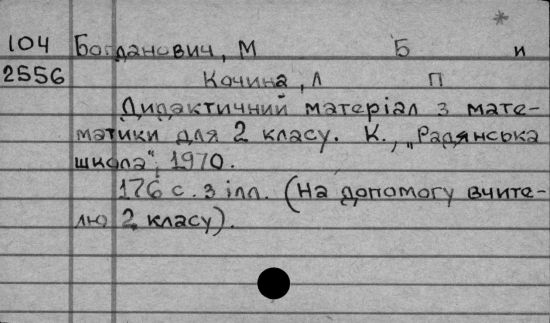 *
104 Богданович, М Б и
2556 Кочина, Л П
Дидактичний матеріал з мате-
матики для 2 класу. К., „Радянська
школа", 1970.
176 с. з ілл. (На допомогу вчите-
лю 2 класу).